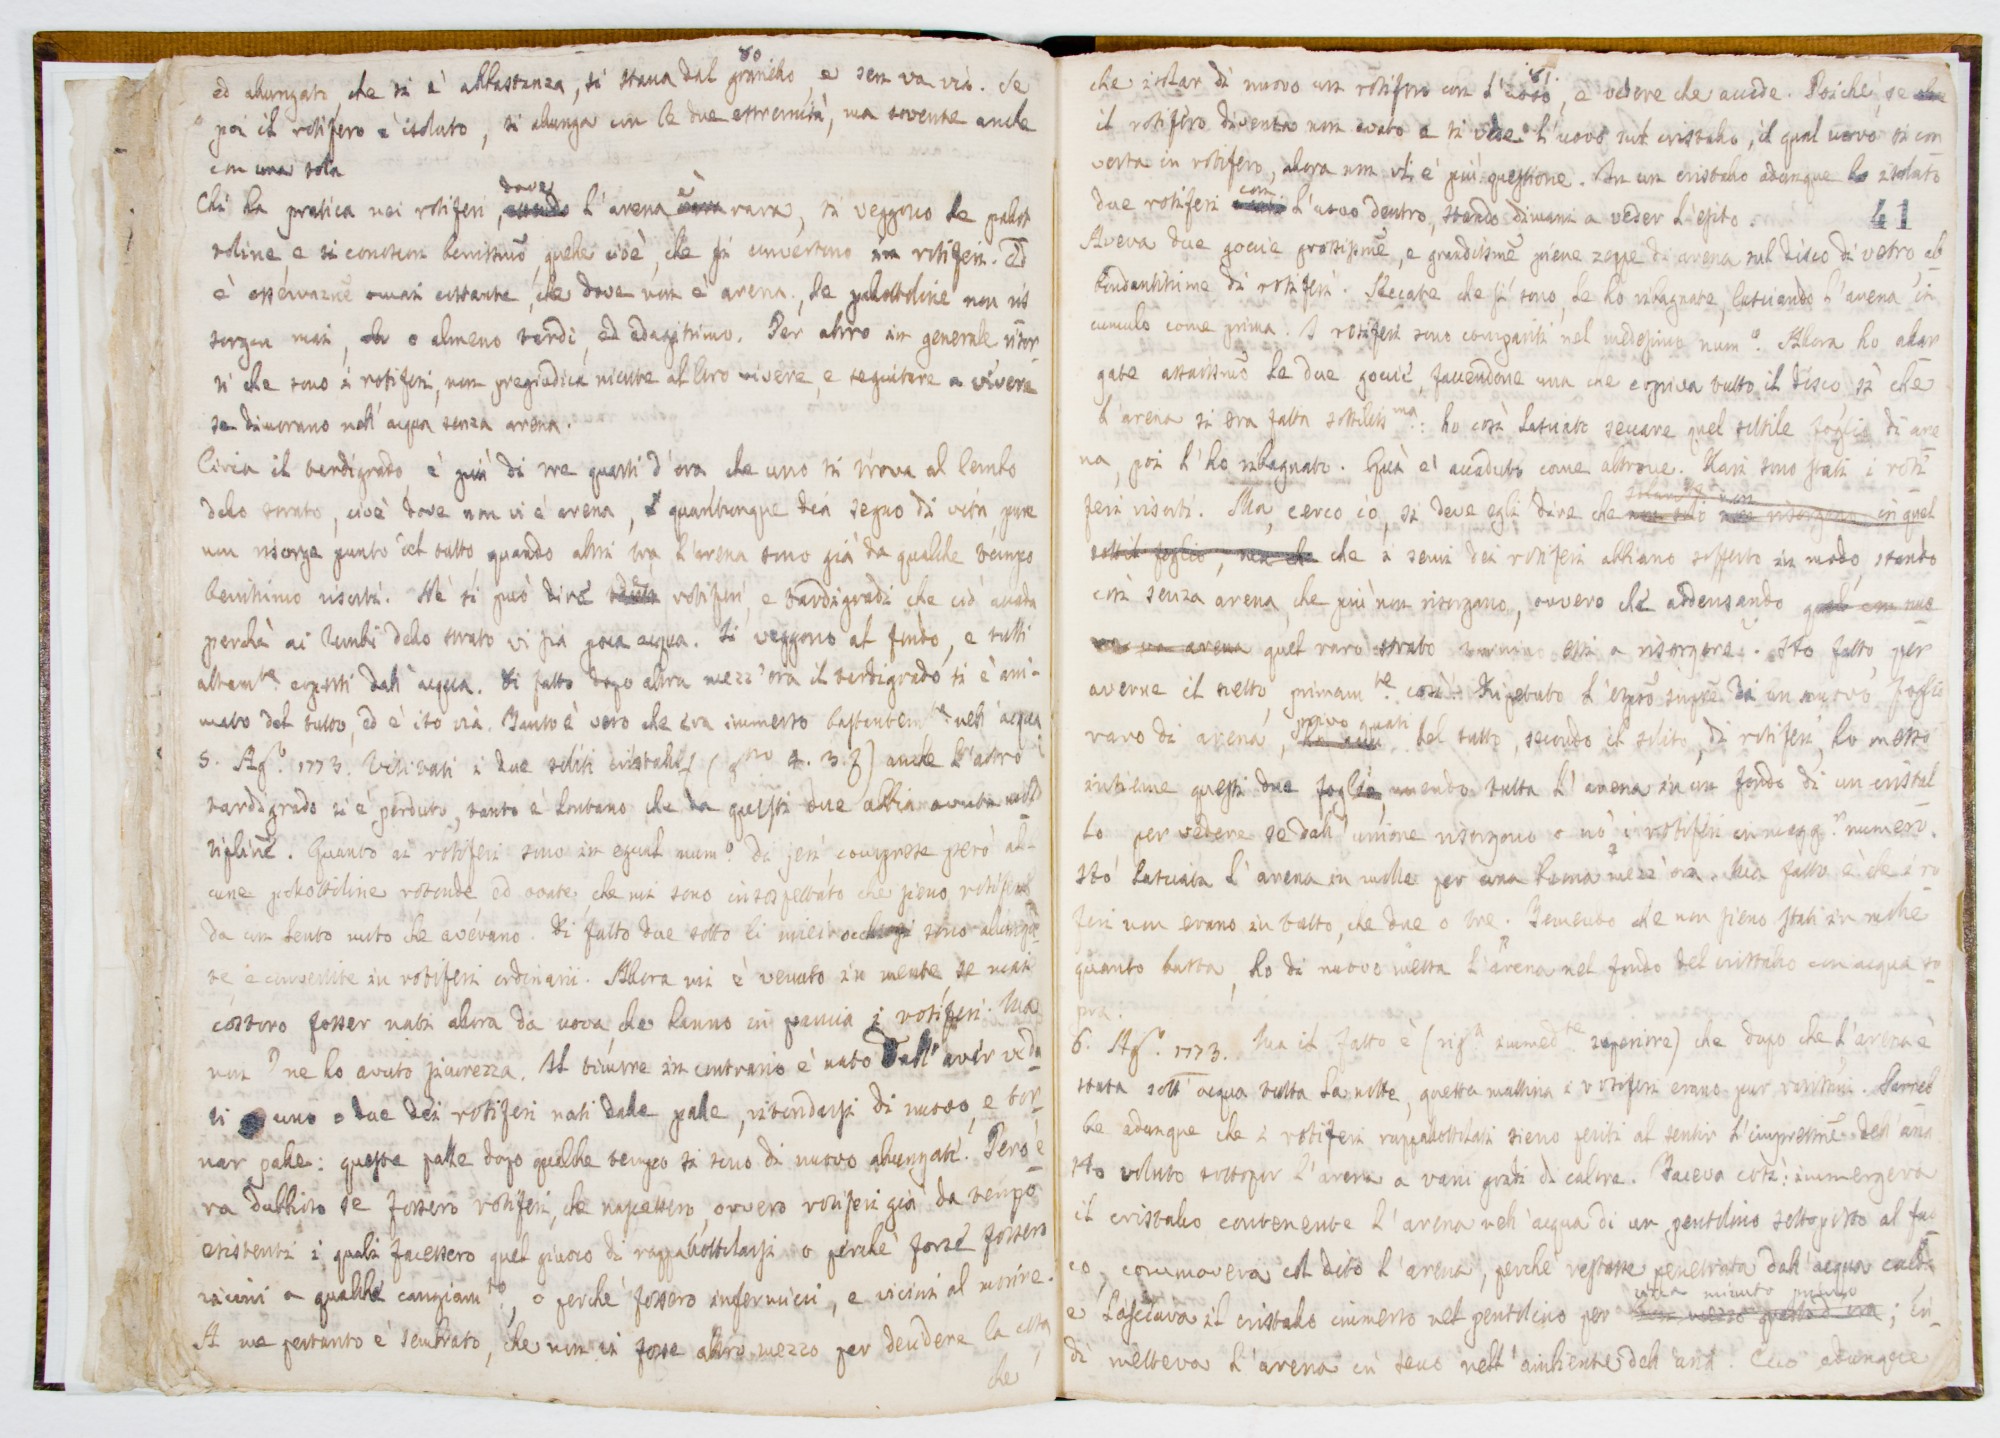 80
ed alungato, che si è abbastanza, si stacca dal granicho, e sen va via. Se
poi il rotifero è isolato, si alunga con le due estremità, ma sovente anche
con una sola
Chi ha pratica nei rotiferi, dove l'arena è rara, si veggono le palot
toline, e si conoscon benissimo, quelle cioè, che si convertono in rotiferi. Ed
è osservazne omai costante, che dove non è arena, le palottoline non ri
sorgon mai, o almeno tardi, ed adagissimo. Per altro in generale risor
ti che sono i rotiferi, non pregiudica niente al loro vivere, e seguitare a vivere
se dimorano nell'acqua senza arena.
Circa il tardigrado, è più di tre quarti d'ora che uno si trova al lembo
dello strato, cioè dove non vi è arena, e quantunque dia segno di vita pure
non risorge punto del tutto quando altri tra l'arena sono già da qualche tempo
benissimo risorti. Nè si può dire de' rotiferi, e tardigradi che ciò accada
perchè ai lembi dello strato vi sia poca acqua. Si veggono al fondo, e tutti
altamte coperti dall'acqua. Di fatto dopo altra mezz'ora il tardigrado si è ani-
mato del tutto, ed è ito via. Tanto è vero che era immerso bastantemte nell'acqua
5. Agto. 1773. Visitati i due soliti cristalli (gno 4. 3. f) anche l'altro
tardigrado si è perduto, tanto è lontano che da questi due abbia avuta molti
tipline. Quanto ai rotiferi sono in egual numo. Di jeri comparse però al-
cune pallottoline rotonde ed ovate, che mi sono insospettato che sieno rotiferi
da un lento moto che avevano. Di fatto due sotto li miei occhi si sono alunga
te, e convertite in rotiferi ordinarii. Allora mi è venuto in mente, se mai
costoro fosser nati allora da uova, che hanno in pancia i rotiferi. Ma
non ne ho avuto sicurezza. Il timore in contrario è nato dall'aver vedu
ti uno o due dei rotiferi nati dalle palle, ritondarsi di nuovo, e tor
nar palle: queste palle dopo qualche tempo si sono di nuovo alungate. Però e
ra dubbioso se fossero rotiferi, che nascessero, ovvero rotiferi già da tempo
esistenti i quali facessero quel giuoco di rappallottolarsi o perchè forse fossero
vicini a qualche cangiamto, o perchè fossero infermicci, e vicini al morire.
A me pertanto è sembrato, che non vi fosse altro mezzo per decidere la cosa,
che
81.
che isolar di nuovo un rotifero con l'uovo, e vedere che accade. Poichè, se
il rotifero diventa non ovato e si vede l'uovo sul cristallo, il qual uovo si con
verta in rotifero, allora non vi è più questione. In un cristallo adunque ho isolato
due rotiferi con l'uovo dentro, stando dimani a veder l'esito.
41
Aveva due goccie grossissime, e grandissime piene zeppe di arena sul disco di vetro ab
bondantissime di rotiferi. Seccate che si sono, le ho ribagnate, lasciando l'arena in
cumulo come prima. I rotiferi sono comparsi nel medesimo numo. Allora ho alar
gate assaissimo le due goccie, facendone una che copriva tutto il disco sì che
l'arena si era fatta sottilissma: ho così lasciato seccare quel sottile foglio di are
na, poi l'ho ribagnato. Qui è accaduto come altrove. Rari sono stati i roti
feri risorti. Ma, cerco io, si deve egli dire che non solo non risorgono in quel
sottil foglio, ma che che i semi dei rotiferi abbiano sofferto in modo, stando
così senza arena, che più non risorgano, ovvero che addensando
va arena quel raro strato tornino essi a risorgere. Ho fatto per
averne il netto, primamte così. Ripetuto l'espto sopre di un nuovo foglio
raro di arena, privo quasi del tutto, secondo il solito, di rotiferi, ho messo
insieme questi due foglie, unendo tutta l'arena in un fondo di un cristal
lo per vedere se dall'unione risorgono o nò i rotiferi in maggr numero.
Ho lasciata l'arena in molle per una buona mezz'ora. Ma fatto è che i ro
feri non erano in tutto, che due o tre. Temendo che non sieno stati in molle
quanto basta, ho di nuovo messa l'arena nel fondo del cristallo con acqua so
pra.
6. Agto. 1773. Ma il fatto è (riga immedte superiore) che dopo che l'arena è
stata sott'acqua tutta la notte, questa mattina i rotiferi erano pur rarissimi. Parreb
be adunque che i rotiferi rappallottolati sieno periti al sentir l'impressne dell'aria
Ho voluto sottopor l'arena a varii gradi di calore. Faceva così: immergeva
il cristallo contenente l'arena nell'acqua di un pentolino sottoposto al fuo
co, commoveva col dito l'arena, perchè restasse penetrata dall'acqua calda
e lasciava il cristallo immerso nel pentolino per circa minuto primo; in
di metteva l'arena in seno nell'ambiente dell'aria. Ciò adunque